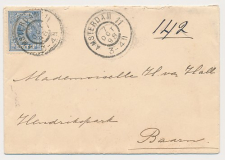 AMSTERDAM 11
142
Mademoiselle H. van Hall
Hendrikpark
Baarn.